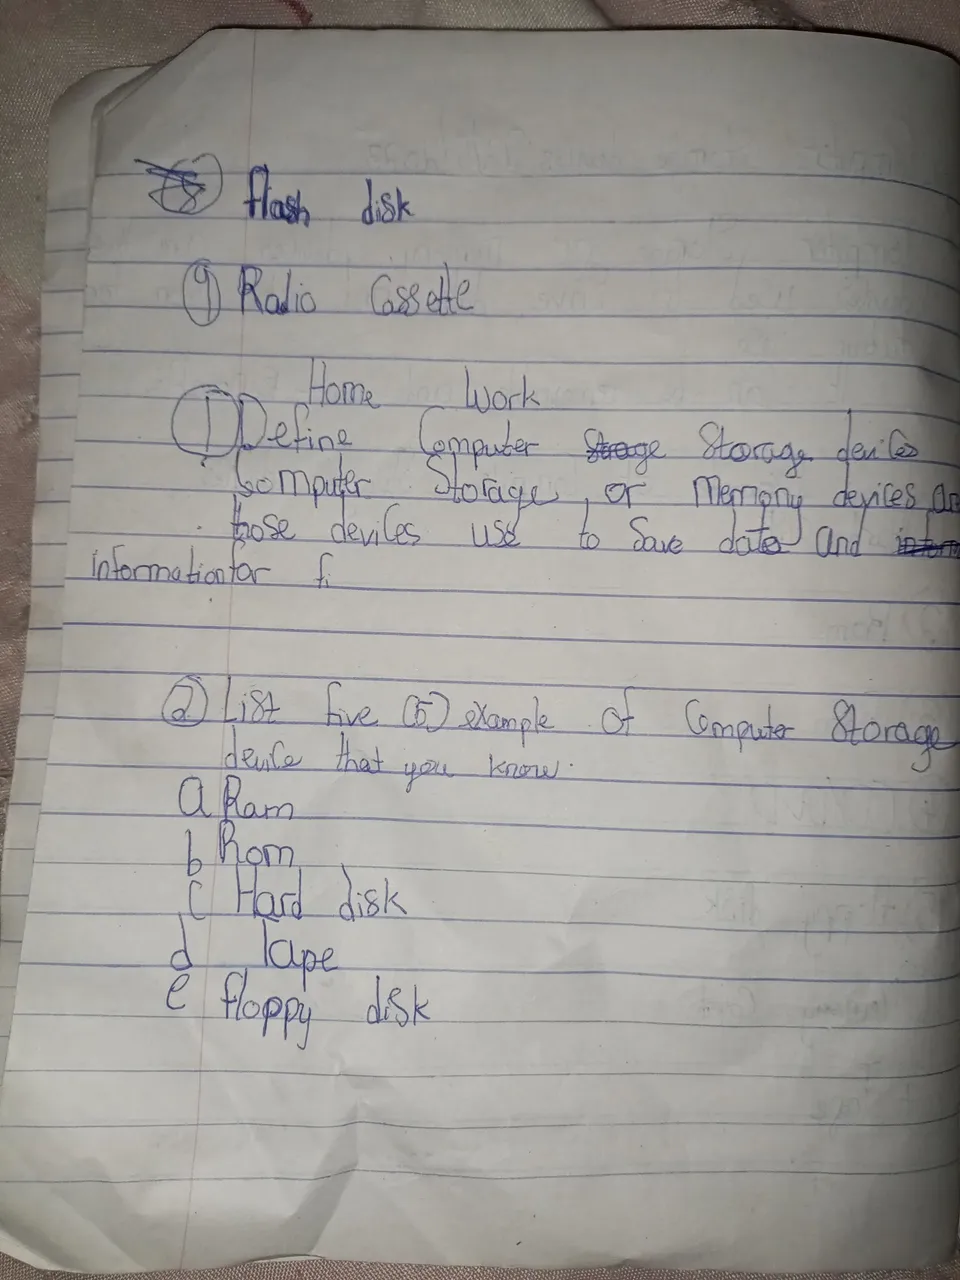 8 flash disk
9 Radio Cassette
Home Work
1 Define Computer Storage Storage devices
Computer Storage, or Memory devices are
those devices use to Save data and
information for f.
2 List five (5) example of Computer Storage
device that you know.
a Ram
b Rom
c Hard disk
d Tape
e floppy disk